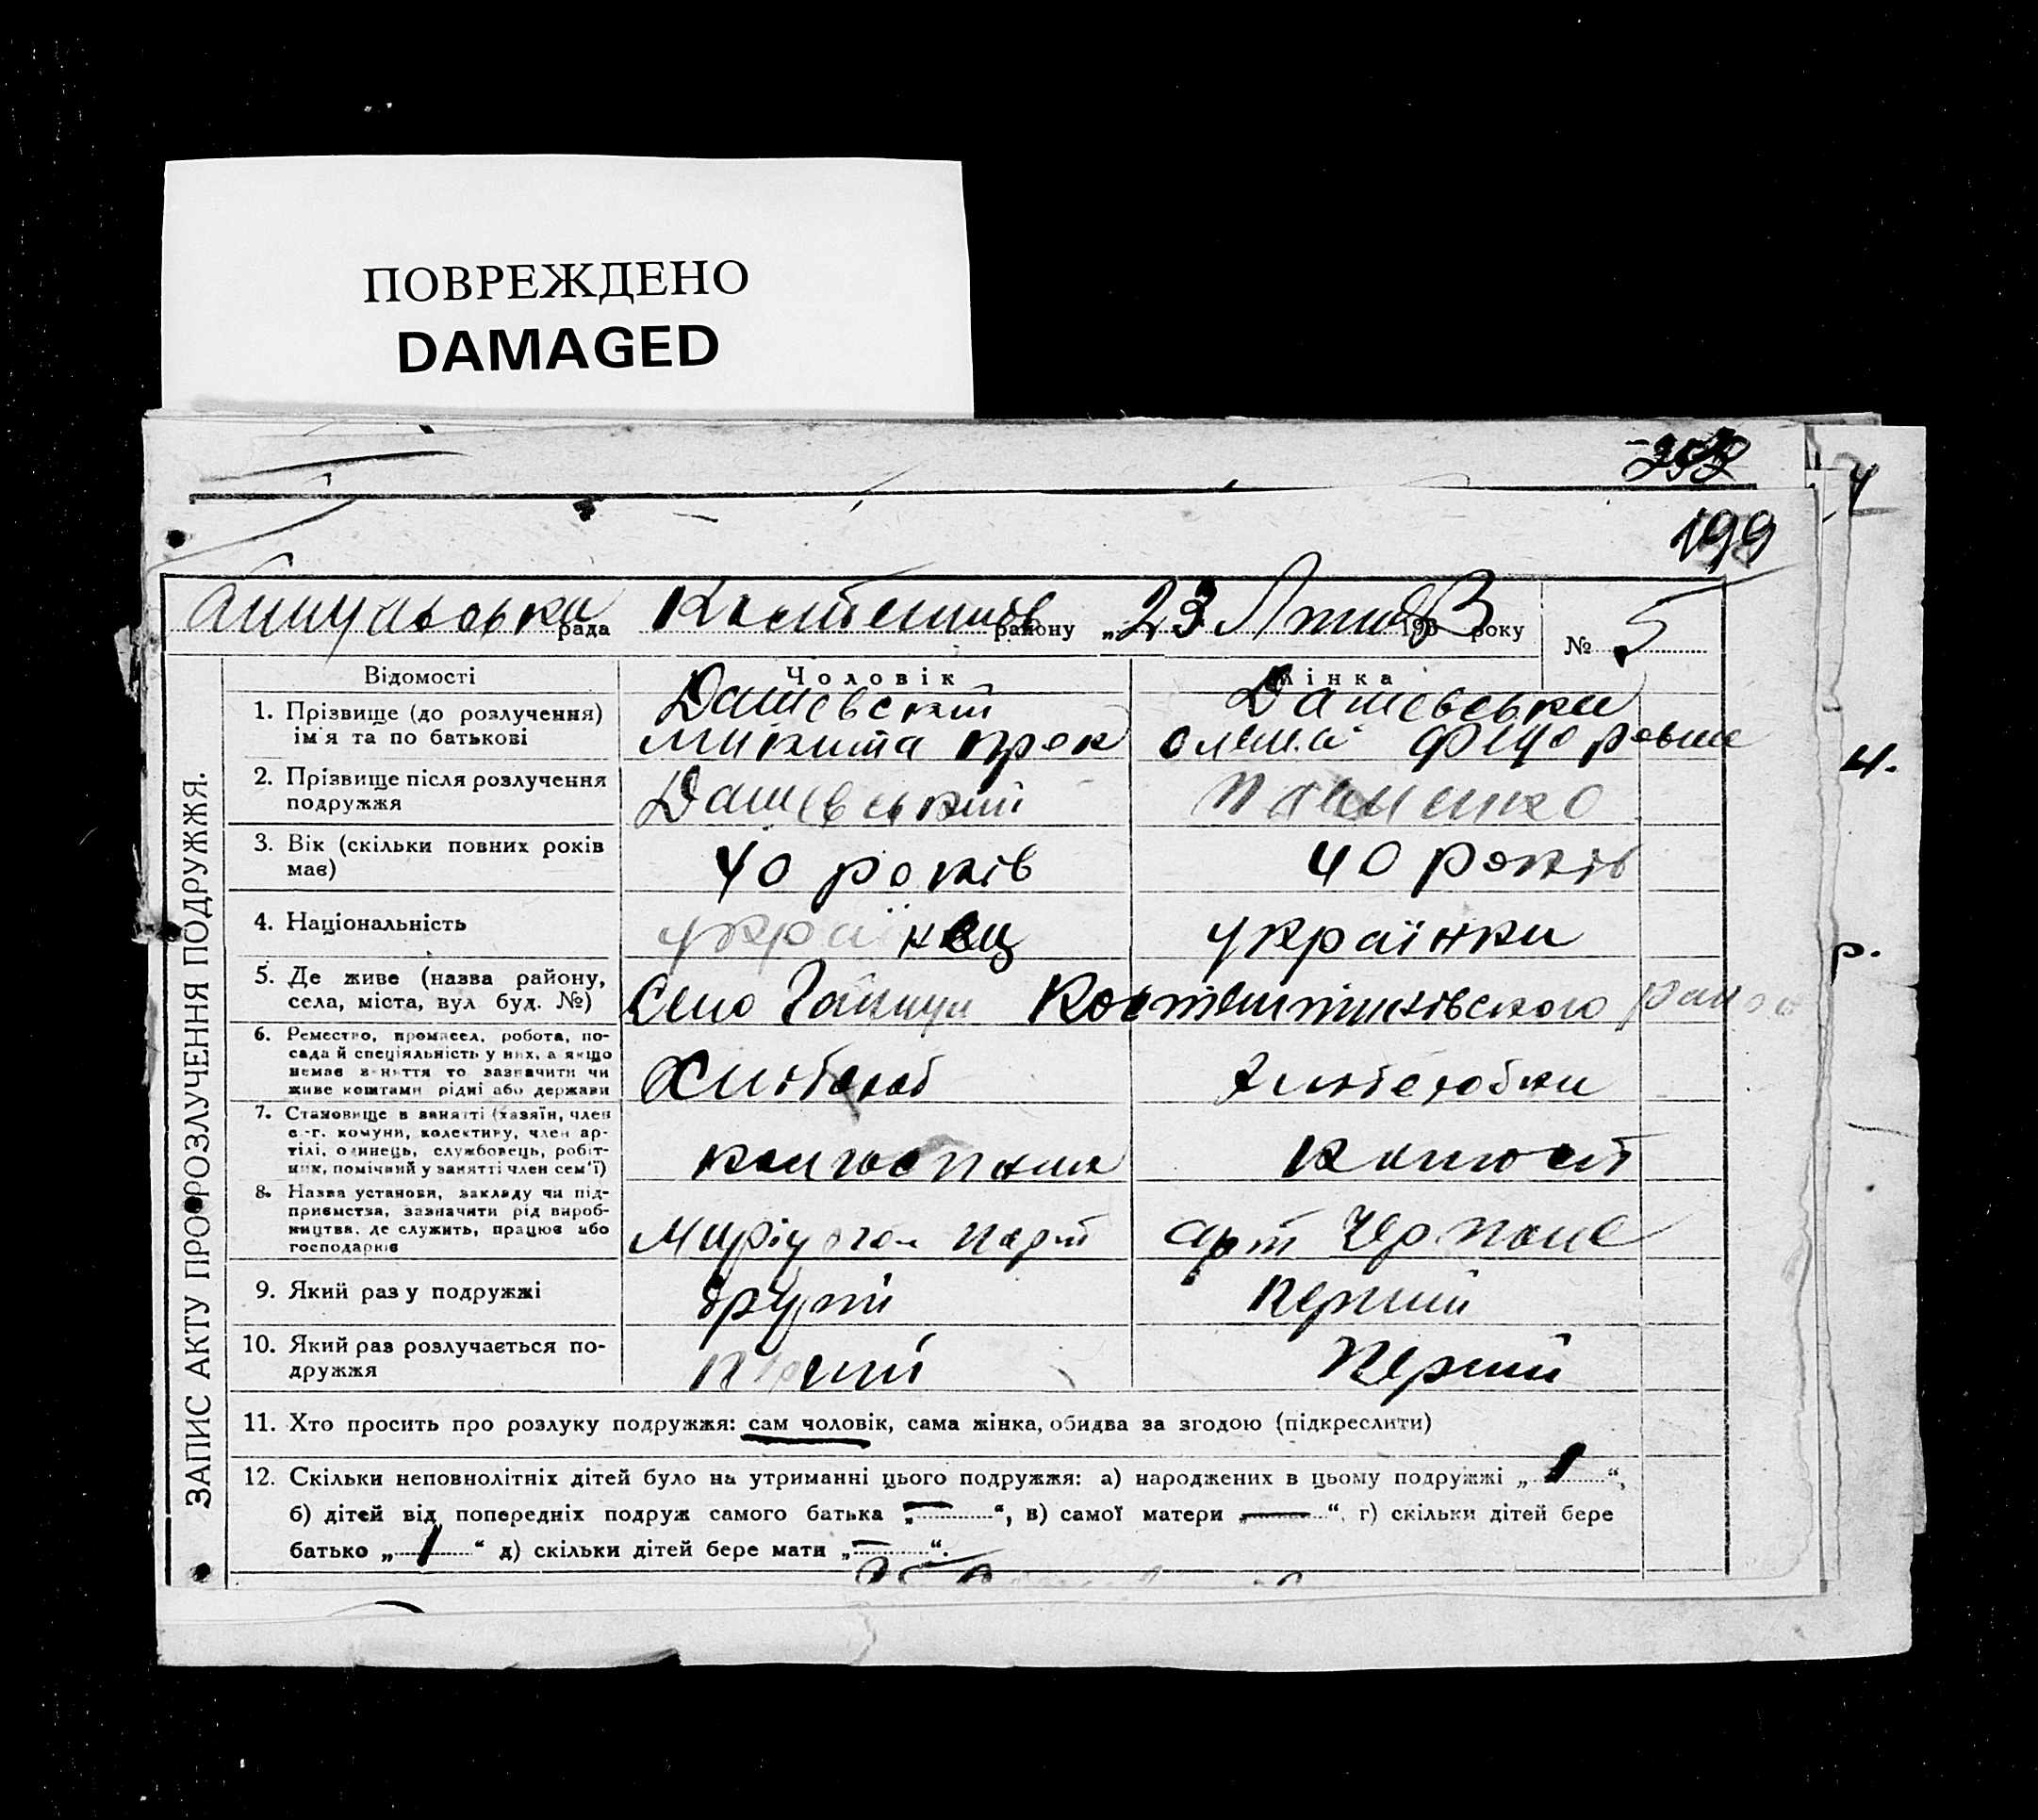 ПОВРЕЖДЕНО
DAMAGED
199
рада району „23 193 3 року № 5
ЗАПИС АКТУ ПРО РОЗЛУЧЕННЯ ПОДРУЖЖЯ.
Відомості Чоловік Жінка
1. Прізвище (до розлучення) Дашевский Дашевська
ім'я та по батькові Микита Прок Олена Федоровна
2. Прізвище після розлучення
подружжя Дашевський
3. Вік (скільки повних років
має) 40 років 40 років
4. Національність українец українка
5. Де живе (назва району,
села, міста, вул буд. №) Село Гайчул
6. Ремество, промисел, робота, по-
сада й спеціяльність у них, а якщо
немає заняття то зазначити чи
живе коштами рідні або держави Хлібороб
7. Становище в занятті (хазяїн, член
с.-г. комуни, колективу, член ар-
тілі, одинець, службовець, робіт-
ник, помічний у занятті член сем'ї)
8. Назва установи, закладу чи під-
приємства, зазначити рід вироб-
ництва, де служить, працює або
господарює арт
9. Який раз у подружжі другий перший
10. Який раз розлучається по-
дружжя перший перший
11. Хто просить про розлуку подружжя: сам чоловік, сама жінка, обидва за згодою (підкреслити)
12. Скільки неповнолітніх дітей було на утриманні цього подружжя: а) народжених в цьому подружжі „ 1 “,
б) дітей від попередніх подруж самого батька „ — “, в) самої матери „ — “. г) скільки дітей бере
батько „ 1 “ д) скільки дітей бере мати „ — “.